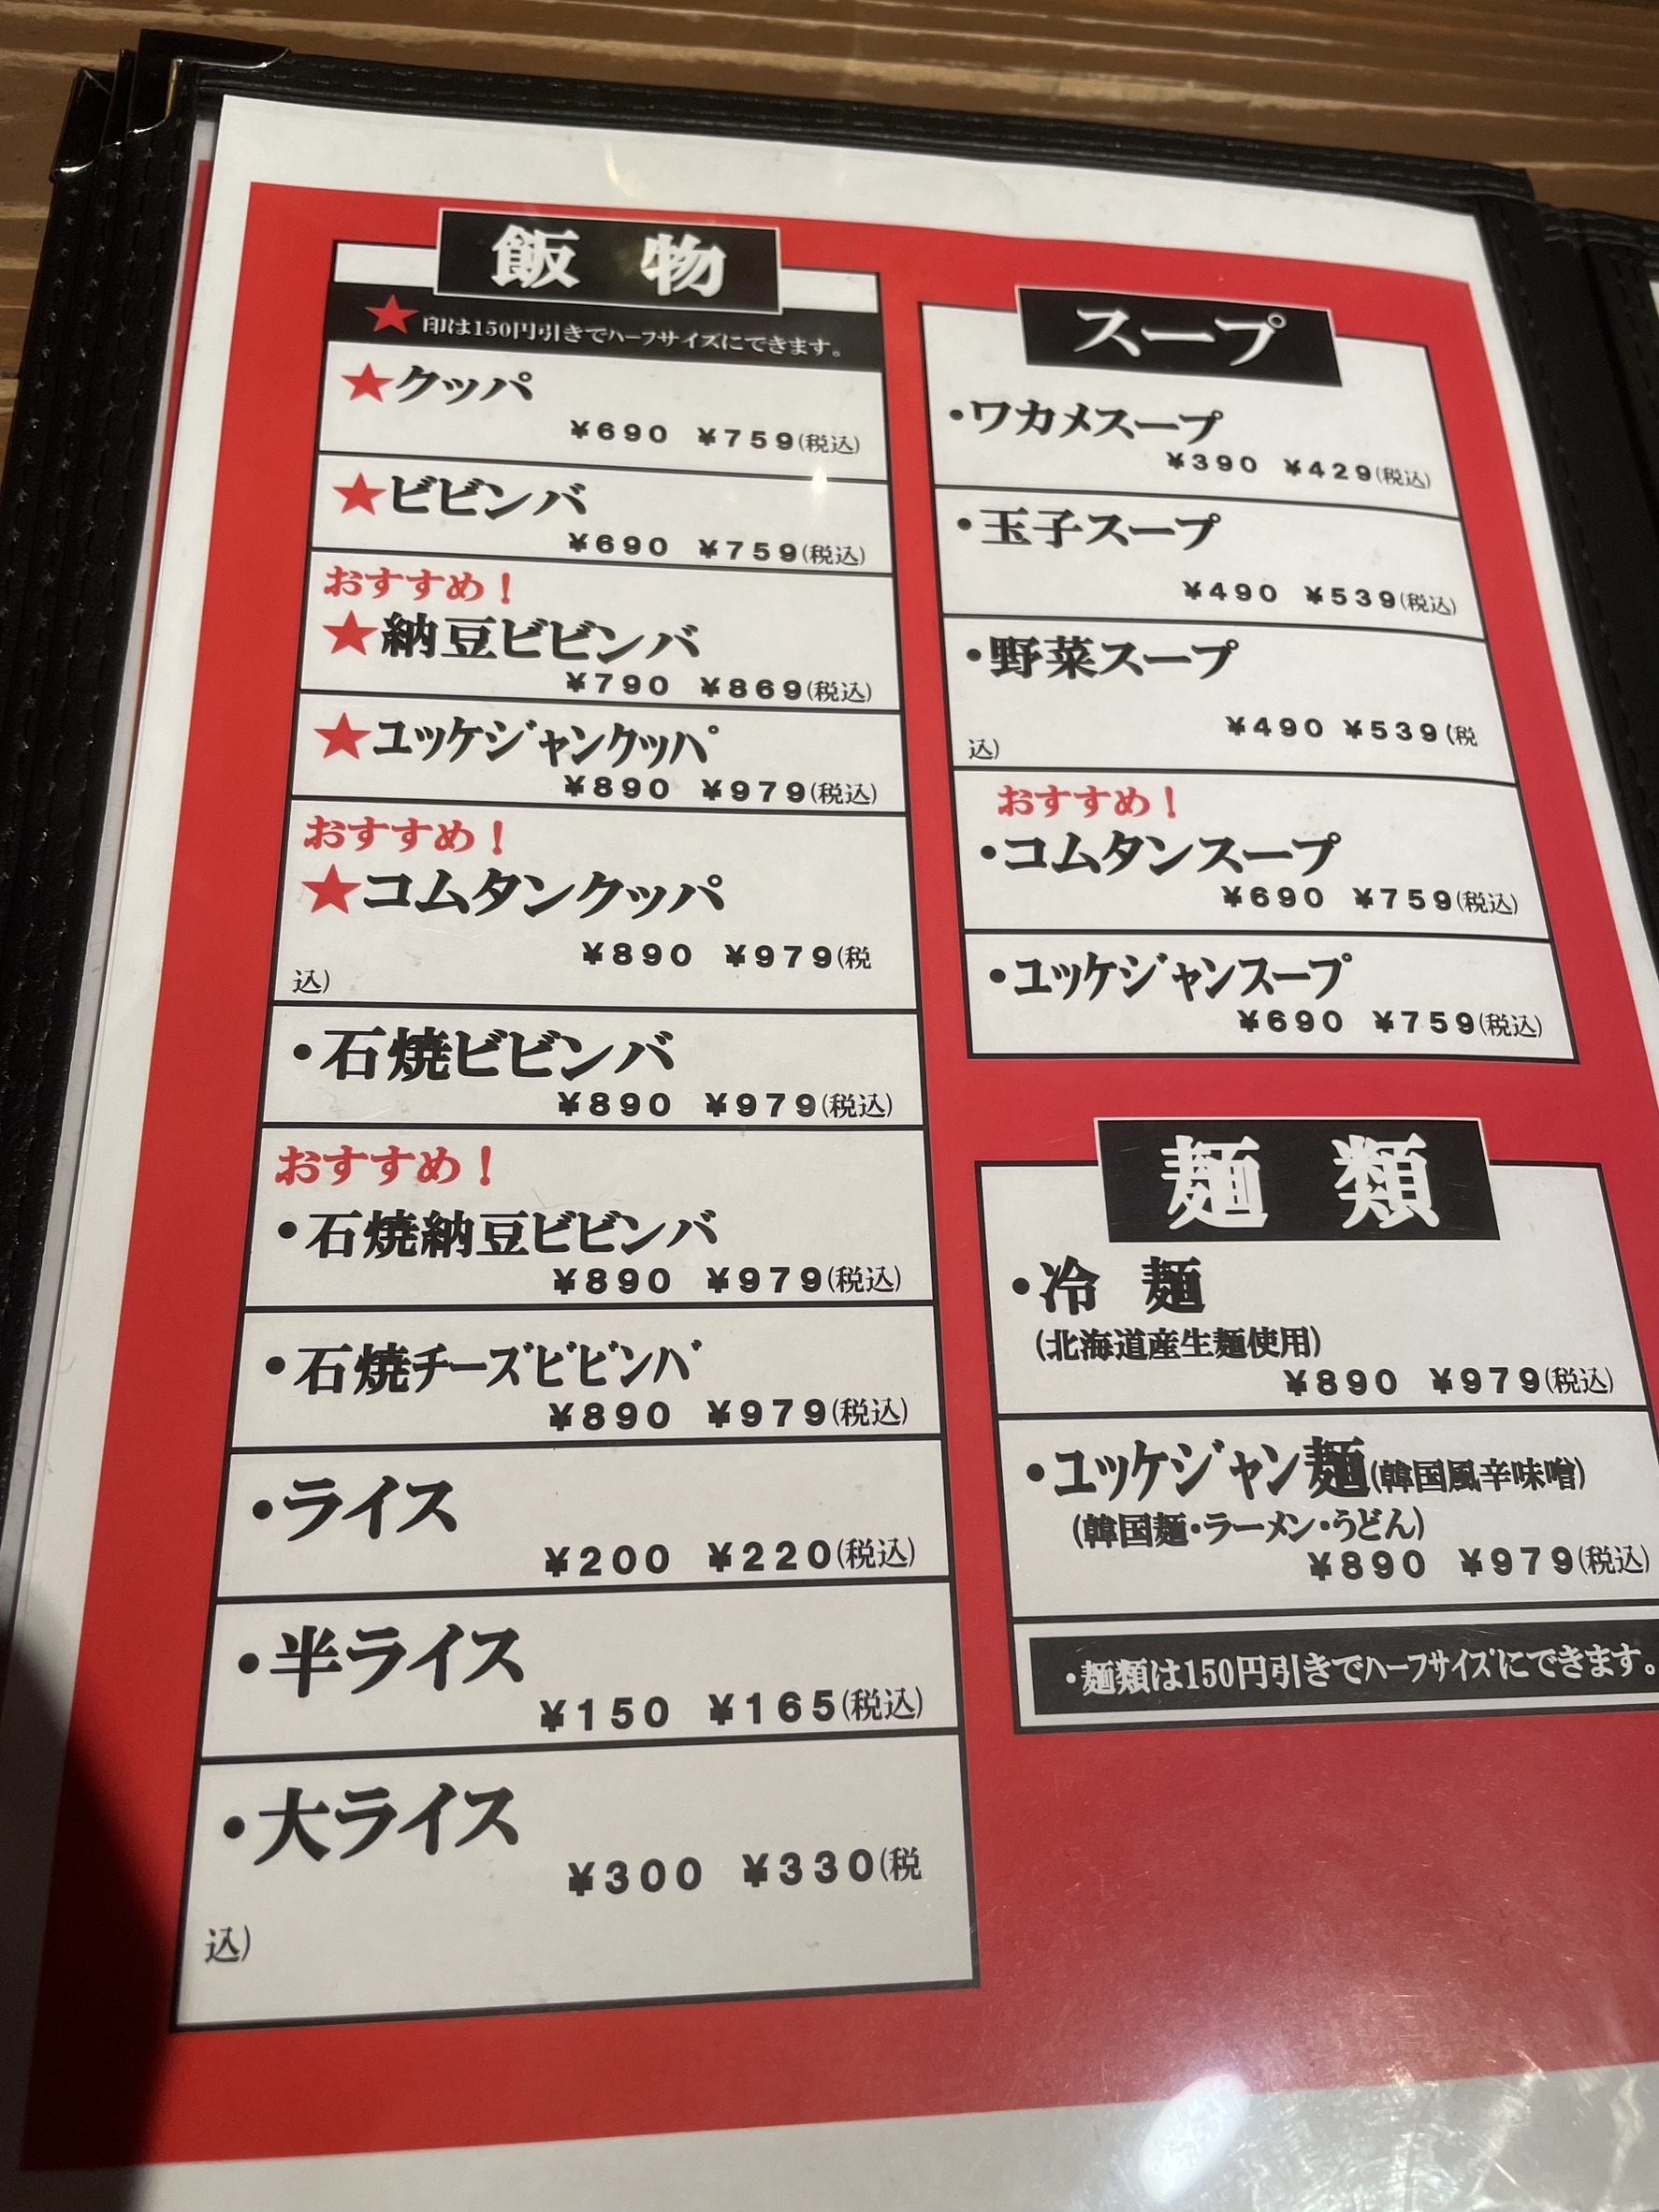 飯 物
★印は150円引きでハーフサイズにできます。
★クッパ
¥690 ¥759(税込)
★ビビンバ
¥690 ¥759(税込)
おすすめ！
★納豆ビビンバ
¥790 ¥869(税込)
★ユッケジャンクッパ
¥890 ¥979(税込)
おすすめ！
★コムタンクッパ
¥890 ¥979(税
込)
・石焼ビビンバ
¥890 ¥979(税込)
おすすめ！
・石焼納豆ビビンバ
¥890 ¥979(税込)
・石焼チーズビビンバ
¥890 ¥979(税込)
・ライス
¥200 ¥220(税込)
・半ライス
¥150 ¥165(税込)
・大ライス
¥300 ¥330(税
込)
スープ
・ワカメスープ
¥390 ¥429(税込)
・玉子スープ
¥490 ¥539(税込)
・野菜スープ
¥490 ¥539(税
込)
おすすめ！
・コムタンスープ
¥690 ¥759(税込)
・ユッケジャンスープ
¥690 ¥759(税込)
麺 類
・冷 麺
(北海道産生麺使用)
¥890 ¥979(税込)
・ユッケジャン麺(韓国風辛味噌)
(韓国麺・ラーメン・うどん)
¥890 ¥979(税込)
・麺類は150円引きでハーフサイズにできます。